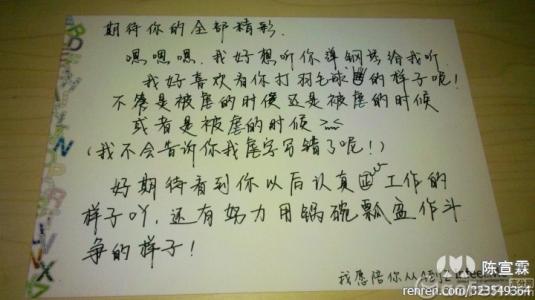 期待你的全部精彩.
嘿嘿嘿.我好想听你弹钢琴给我听.
我好喜欢看你打羽毛球的样子呢!
不管是被虐的时候还是被虐的时候
或者是被虐的时候 >.<
(我不会告诉你我虐字写错了呢!)
好期待看到你以后认真工作的
样子吖,还有努力用锅碗瓢盆作斗
争的样子!
我愿陪你从
陈宣霖
renren.com/323549364